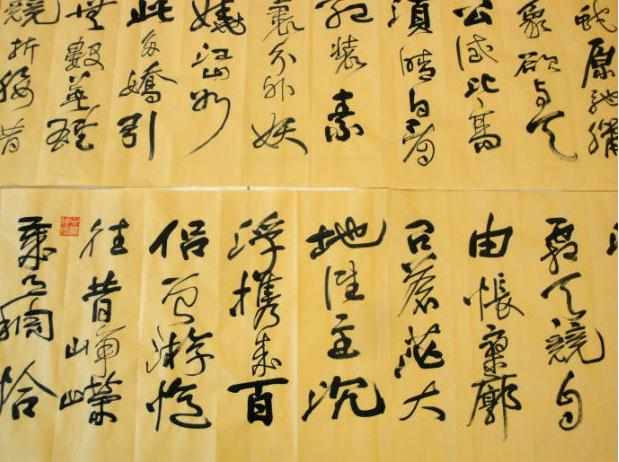 蛇原馳蠟
象欲与天
公試比高
須晴日看
紅裝素
裹分外妖
嬈江山如
此多嬌引
無數英雄
競折腰昔
霜天競自
由悵寥廓
問蒼茫大
地誰主沉
浮携來百
侣曾游憶
往昔崢嶸
歲月稠恰